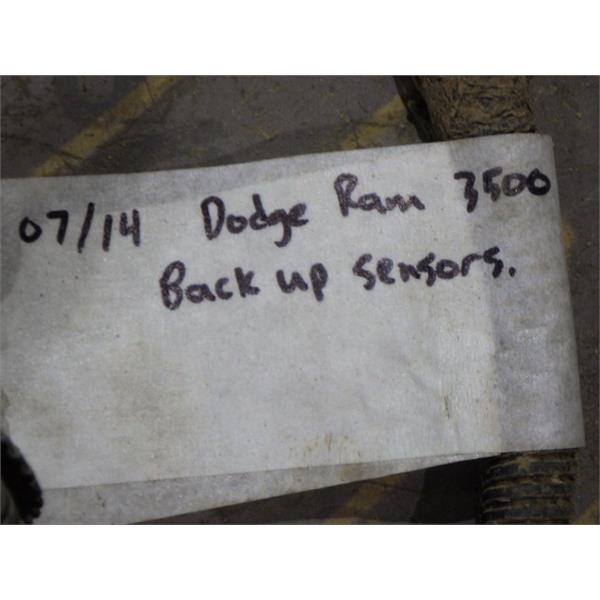 07/14 Dodge Ram 3500
Back up sensors.